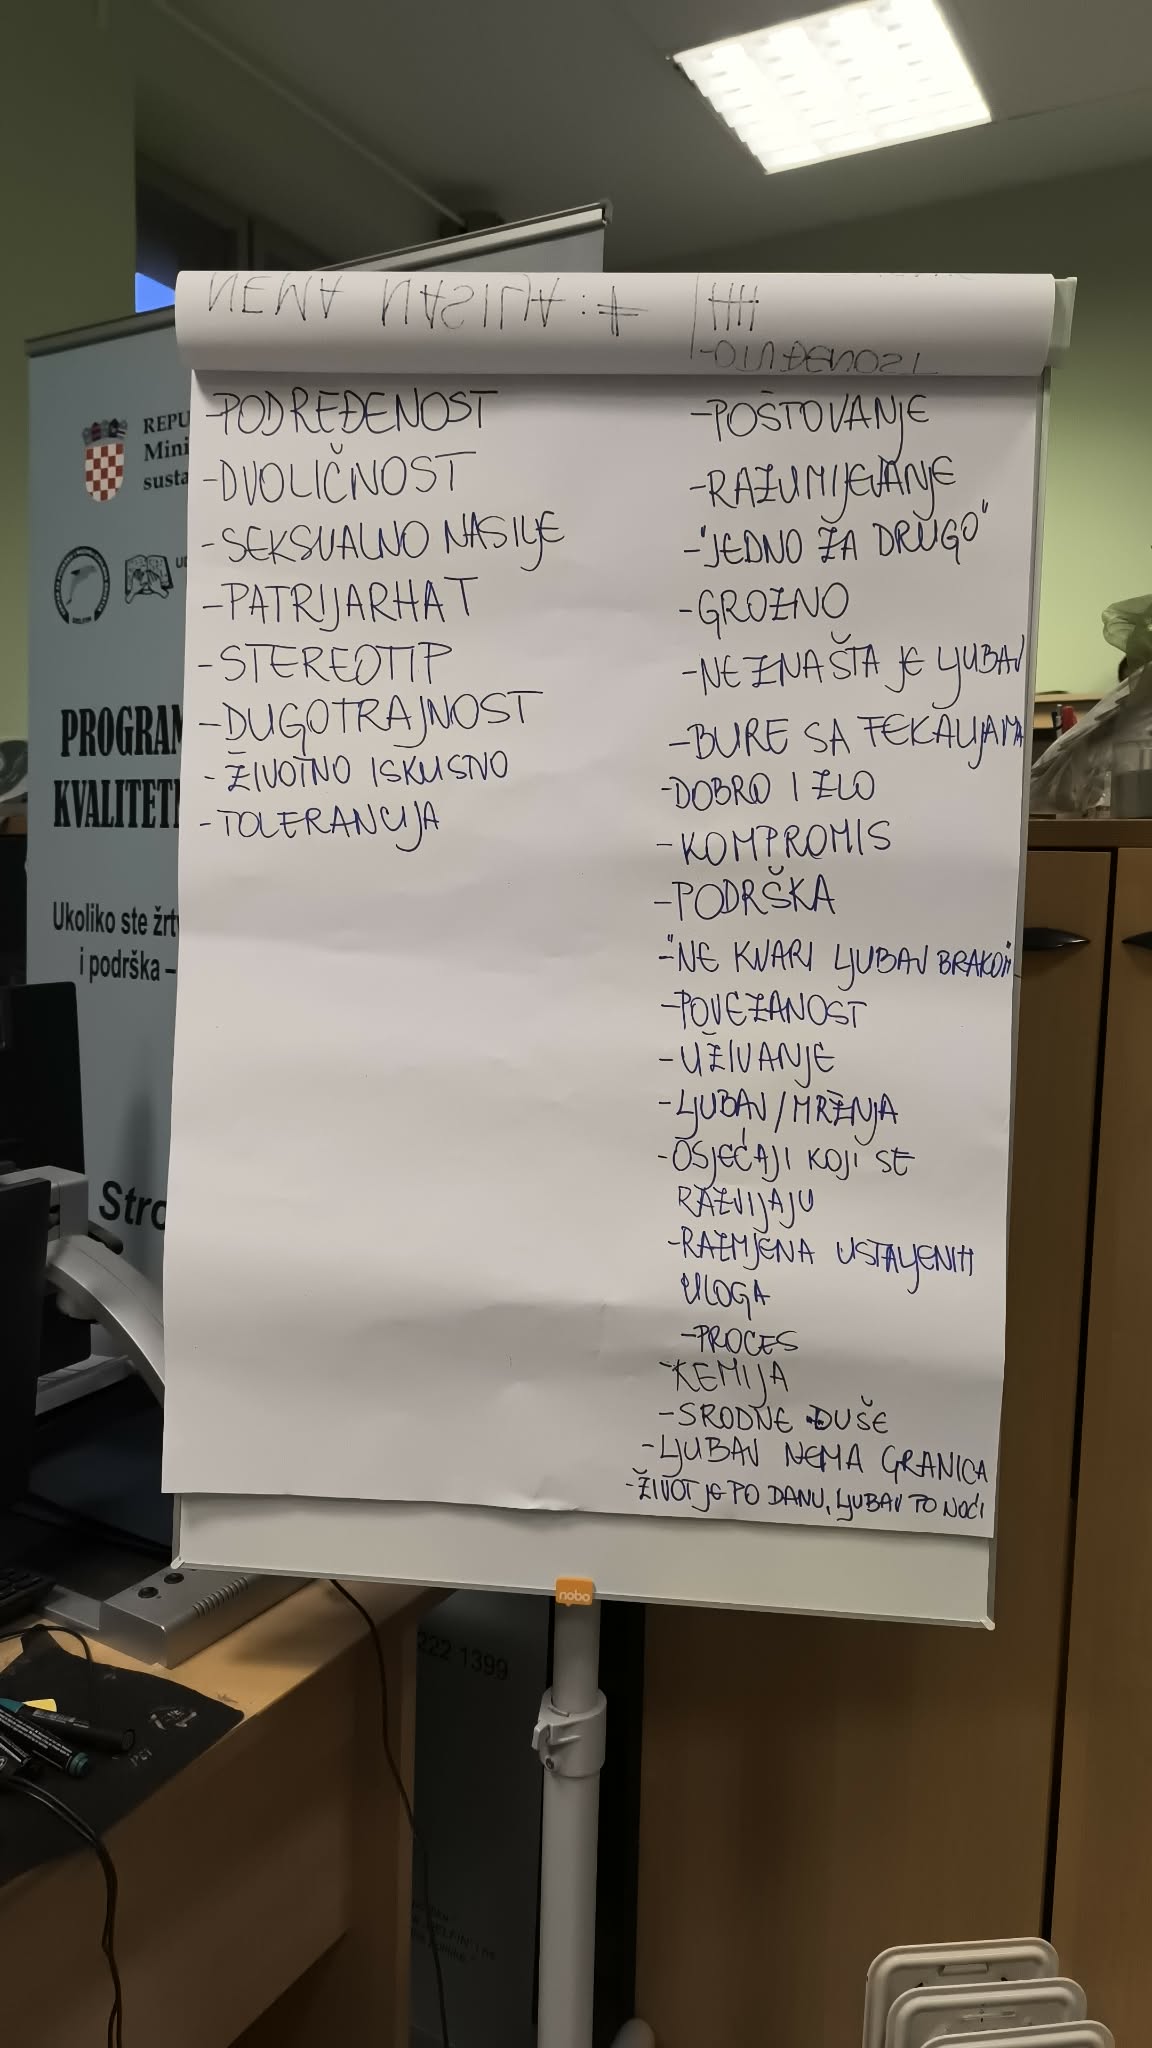 NEMA NASILJA: #
-PODREĐENOST
-DVOLIČNOST
-SEKSUALNO NASILJE
-PATRIJARHAT
-STEREOTIP
-DUGOTRAJNOST
-ŽIVOTNO ISKUSTVO
-TOLERANCIJA
-POŠTOVANJE
-RAZUMIJEVANJE
-"JEDNO ZA DRUGO"
-GROZNO
-NE ZNA ŠTA JE LJUBAV
-BURE SA FEKALIJAMA
-DOBRO I ZLO
-KOMPROMIS
-PODRŠKA
-"NE KVARI LJUBAV BRAKOM"
-POVEZANOST
-UŽIVANJE
-LJUBAV/MRŽNJA
-OSJEĆAJI KOJI SE
RAZVIJAJU
-RAZMJENA USTALJENIH
ULOGA
-PROCES
-KEMIJA
-SRODNE DUŠE
-LJUBAV NEMA GRANICA
-ŽIVOT JE PO DANU, LJUBAV PO NOĆI
REPU
Mini
susta
PROGRAM
KVALITET
Ukoliko ste žrt
i podrška –
Stro
nobo
222 1399